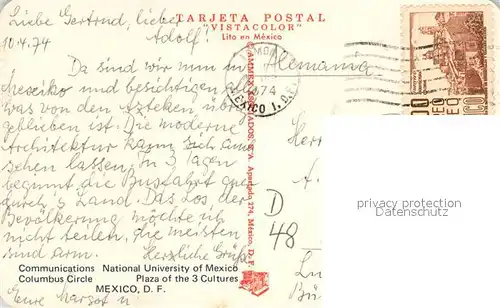 TARJETA POSTAL
"VISTACOLOR"
Lito en México
Liebe Gertrud, lieber
10.4.74 Adolf!
Alemania
Da sind wir nun in
Mexiko und besichtigen
was von den Azteken übrig
geblieben ist. Die moderne
Architektur kann sich auch
sehen lassen. In 3 Tagen
beginnt die Busfahrt
durch's Land. Das Los der
Bevölkerung möchte ich
nicht teilen, die meisten
sind arm. Herzliche Grüße
Eure Margot u
Communications National University of Mexico
Columbus Circle Plaza of the 3 Cultures
MEXICO, D. F.
AMMEX ASOCIADOS, S. A. Apartado 274, México, D. F.
MEXICO 1, D.F.
74
Herr
A.
D
48
Lü
Bü
privacy protection
Datenschutz